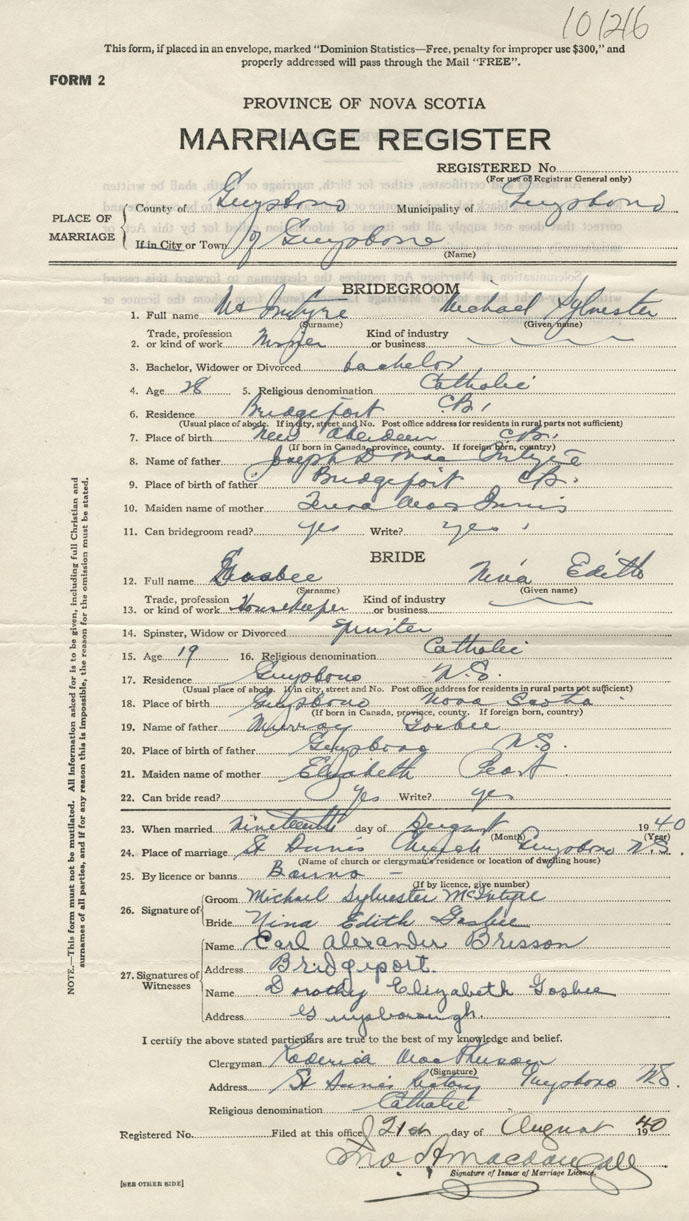 10126
This form, if placed in an envelope, marked "Dominion Statistics—Free, penalty for improper use $300," and
properly addressed will pass through the Mail "FREE".
FORM 2
PROVINCE OF NOVA SCOTIA
MARRIAGE REGISTER
REGISTERED No.
(For use of Registrar General only)
PLACE OF MARRIAGE
County of Guysboro Municipality of Guysboro
If in City or Town of Guysboro
(Name)
BRIDEGROOM
1. Full name McIntyre Michael Sylvester
(Surname) (Given name)
2. Trade, profession or kind of work Kind of industry or business
3. Bachelor, Widower or Divorced bachelor
4. Age 28 5. Religious denomination Catholic
6. Residence Bridgeport C.B.
(Usual place of abode. If in city, street and No. Post office address for residents in rural parts not sufficient)
7. Place of birth New Aberdeen C.B.
(If born in Canada, province, county. If foreign born, country)
8. Name of father Joseph D MacIntyre
9. Place of birth of father Bridgeport C.B.
10. Maiden name of mother Teresa MacInnis
11. Can bridegroom read? yes Write? yes
BRIDE
12. Full name Gosbee Nina Edith
(Surname) (Given name)
13. Trade, profession or kind of work Housekeeper Kind of industry or business
14. Spinster, Widow or Divorced Spinster
15. Age 19 16. Religious denomination Catholic
17. Residence Guysboro N.S.
(Usual place of abode. If in city, street and No. Post office address for residents in rural parts not sufficient)
18. Place of birth Guysboro Nova Scotia
(If born in Canada, province, county. If foreign born, country)
19. Name of father Murray Gosbee
20. Place of birth of father Guysboro N.S.
21. Maiden name of mother Elizabeth Peart
22. Can bride read? yes Write? yes
23. When married nineteenth day of August 1940
(Month) (Year)
24. Place of marriage St Annis Church Guysboro N.S.
(Name of church or clergyman's residence or location of dwelling house)
25. By licence or banns Banns –
(If by licence, give number)
26. Signature of
Groom Michael Sylvester McIntyre
Bride Nina Edith Gosbee
27. Signatures of Witnesses
Name Carl Alexander Brisson
Address Bridgeport.
Name Dorothy Elizabeth Gosbee
Address Guysborough.
I certify the above stated particulars are true to the best of my knowledge and belief.
Clergyman Roderick MacPherson
(Signature)
Address St Annis Rectory Guysboro N.S.
Religious denomination Catholic
Registered No. Filed at this office 21st day of August 1940
Jno A Macdougall
Signature of Issuer of Marriage Licence.
[SEE OTHER SIDE]
NOTE.—This form must not be mutilated. All information asked for is to be given, including full Christian and
surnames of all parties, and if for any reason this is impossible, the reason for the omission must be stated.